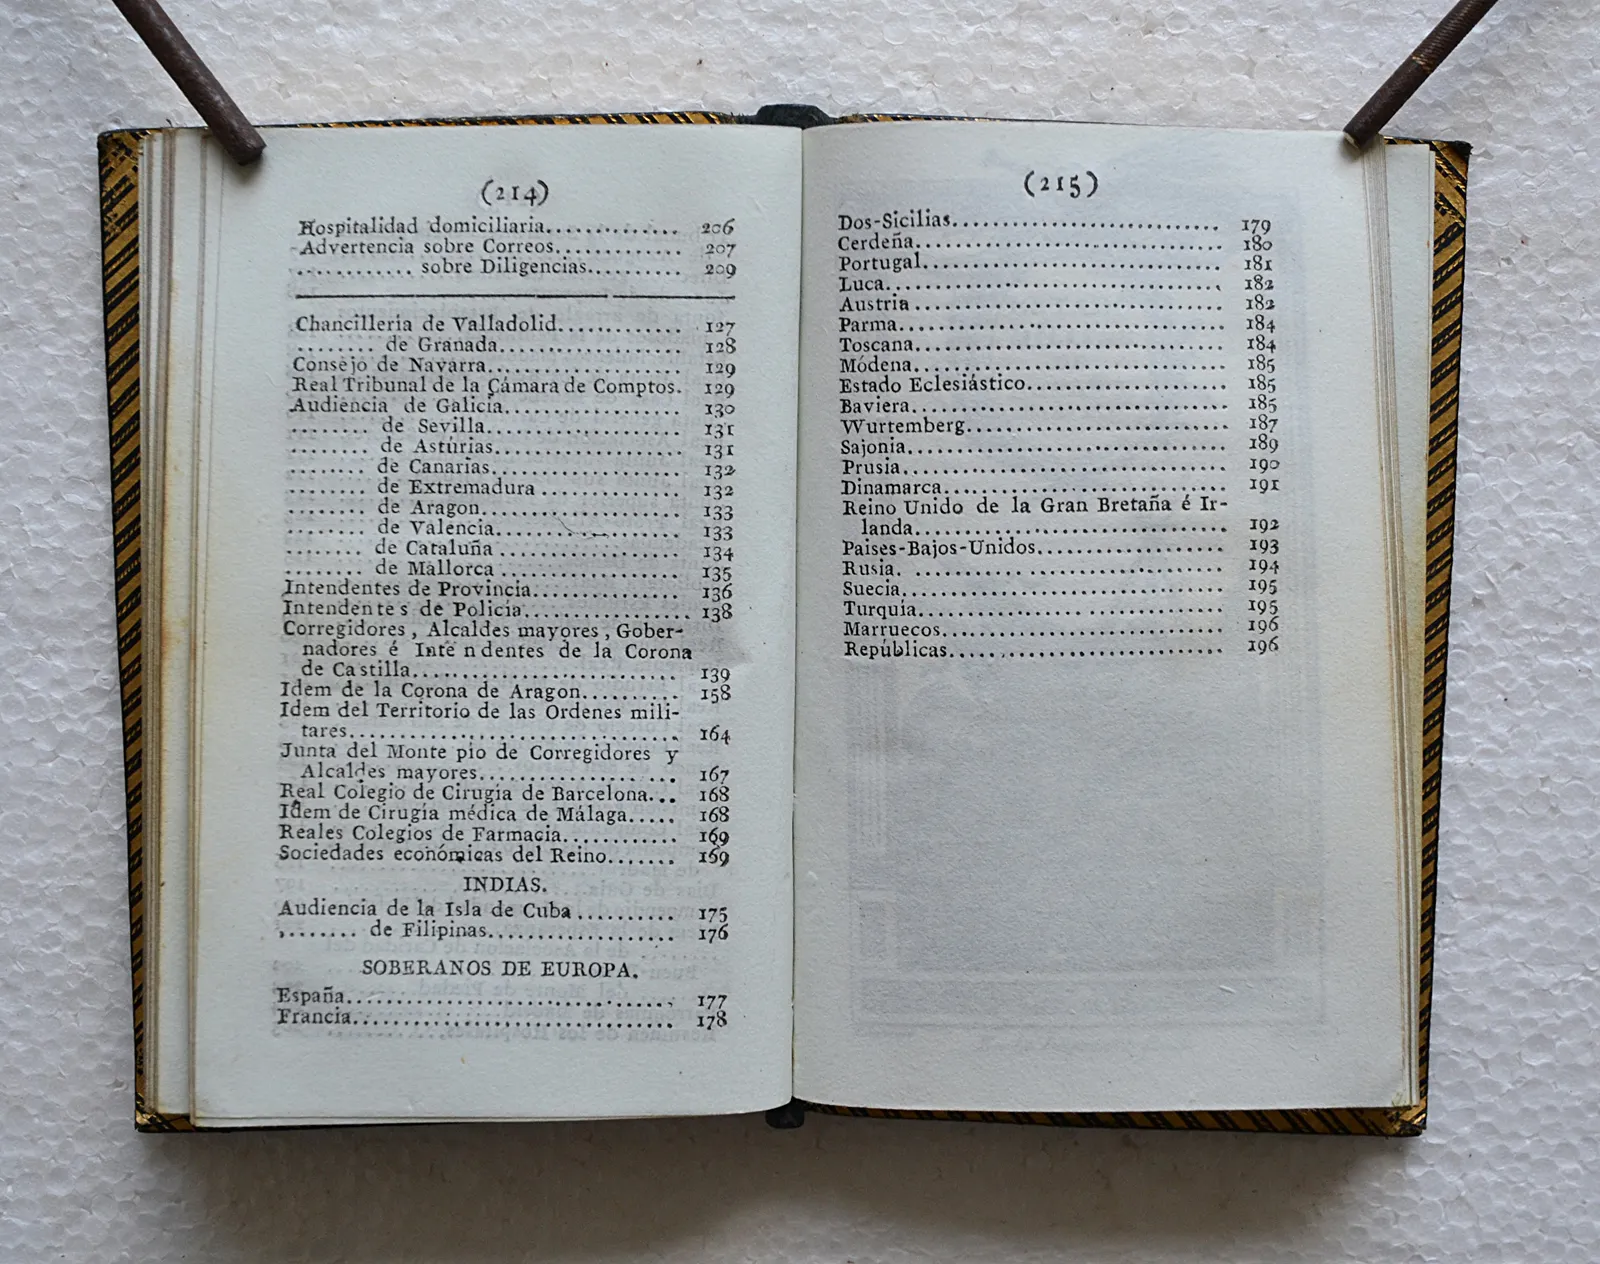 (214)
Hospitalidad domiciliaria.............. 206
Advertencia sobre Correos............. 207
............ sobre Diligencias.......... 209
Chancilleria de Valladolid............. 127
........ de Granada................... 128
Consejo de Navarra.................... 129
Real Tribunal de la Cámara de Comptos. 129
Audiencia de Galicia................... 130
........ de Sevilla.................... 131
........ de Astúrias................... 131
........ de Canarias................... 132
........ de Extremadura .............. 132
........ de Aragon.................... 133
........ de Valencia................... 133
........ de Cataluña .................. 134
........ de Mallorca .................. 135
Intendentes de Provincia............... 136
Intendentes de Policia................. 138
Corregidores, Alcaldes mayores, Gober-
nadores é Intendentes de la Corona
de Castilla........................... 139
Idem de la Corona de Aragon.......... 158
Idem del Territorio de las Ordenes mili-
tares................................. 164
Junta del Monte pio de Corregidores y
Alcaldes mayores.................... 167
Real Colegio de Cirugia de Barcelona... 168
Idem de Cirugía médica de Málaga..... 168
Reales Colegios de Farmacia............ 169
Sociedades económicas del Reino....... 169
INDIAS.
Audiencia de la Isla de Cuba .......... 175
........ de Filipinas................... 176
SOBERANOS DE EUROPA.
España................................. 177
Francia................................ 178
(215)
Dos-Sicilias........................... 179
Cerdeña............................... 180
Portugal.............................. 181
Luca.................................. 182
Austria ............................... 182
Parma................................. 184
Toscana............................... 184
Módena............................... 185
Estado Eclesiástico.................... 185
Baviera................................ 185
Wurtemberg.......................... 187
Sajonia................................ 189
Prusia................................. 190
Dinamarca............................ 191
Reino Unido de la Gran Bretaña é Ir-
landa............................... 192
Paises-Bajos-Unidos................... 193
Rusia. ............................... 194
Suecia................................ 195
Turquía............................... 195
Marruecos............................ 196
Repúblicas............................ 196